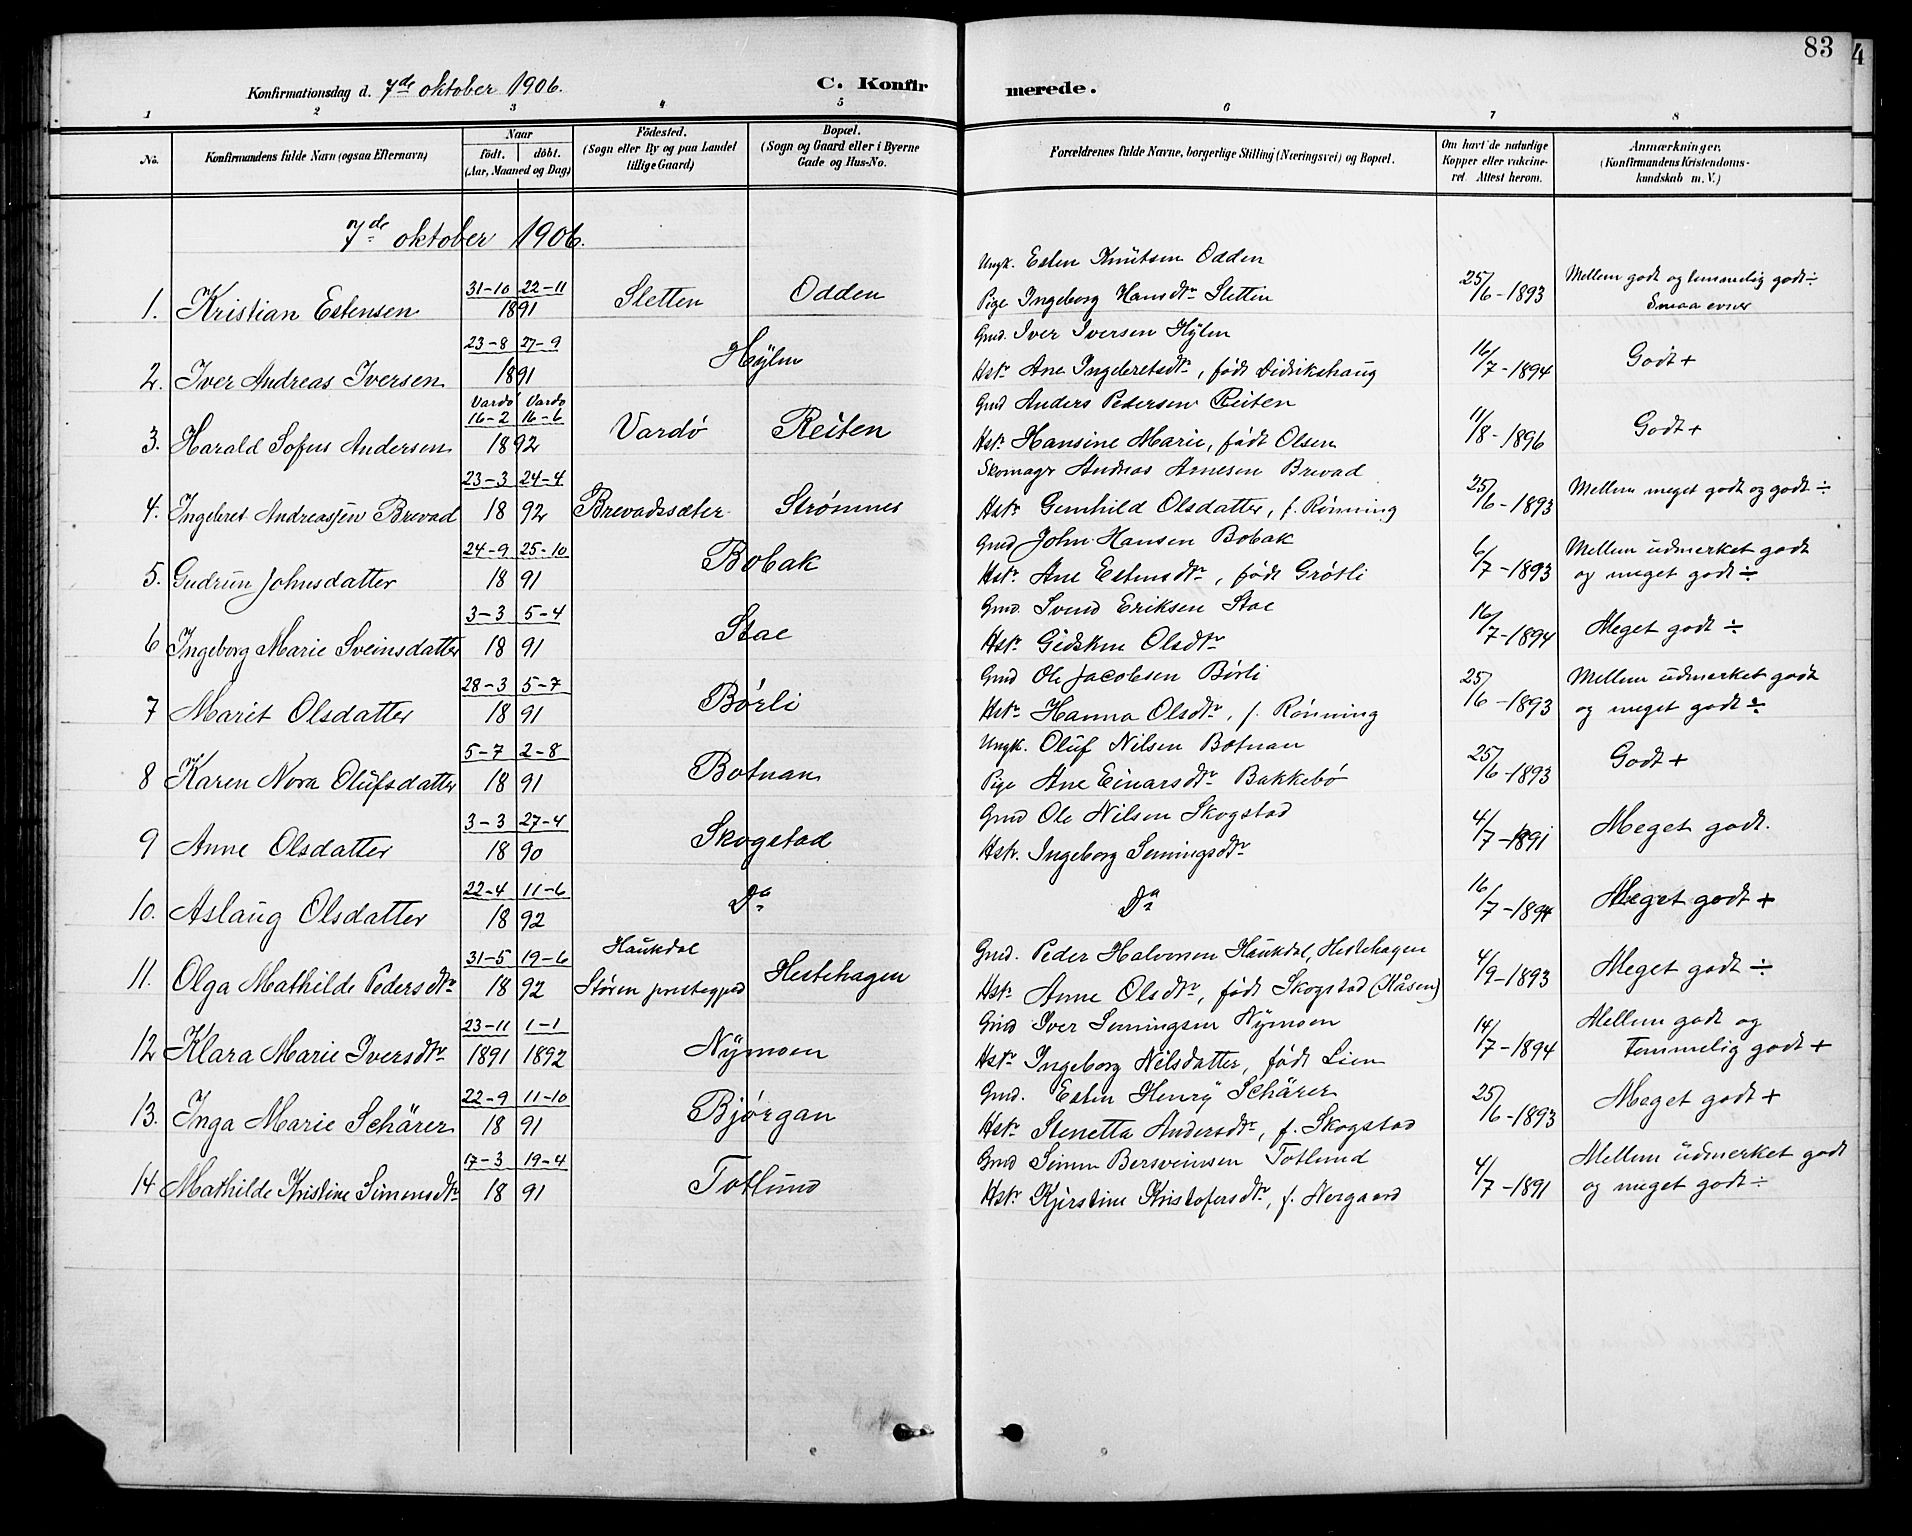 83
4
Konfirmationsdag d. 7de oktober 1906.
C. Konfir
merede.
1 2 3 4 5 6 7 8
No.
Konfirmandens fulde Navn (ogsaa Efternavn)
Naar
födt. döbt.
(Aar, Maaned og Dag)
Födested.
(Sogn eller By og paa Landet
tillige Gaard)
Bopæl.
(Sogn og Gaard eller i Byerne
Gade og Hus-No.
Forældrenes fulde Navne, borgerlige Stilling (Næringsvei) og Bopæl.
Om havt de naturlige
Kopper eller vakcine-
ret. Attest herom.
Anmærkninger.
(Konfirmandens Kristendoms-
kundskab m. V.)
7de oktober 1906.
1. Kristian Estensen 31-10 22-11 1891 Sletten Odden
Ungk. Esten Knutsen Odden
Pige Ingeborg Hansdtr Sletten
25/6-1893
Mellem godt og temmelig godt ÷
Smaa evner
2. Iver Andreas Iversen 23-8 27-9 1891 Hÿlm
Gmd. Iver Iversen Hÿlm
Hstr Ane Ingebretsdtr, født Didrikshaug
16/7-1894
Godt +
3. Harald Sofus Andersen Vardø Vardø 16-2 16-6 1892 Vardø Reiten
Gmd Anders Petersen Reiten
Hstr Hansine Marie, født Olsen
11/8-1896
Godt +
4. Ingebret Andreassen Brevad 23-3 24-4 1892 Brevadsæter Strømnes
Skomagr Andreas Arnesen Brevad
Hstr Gunhild Olsdatter, f. Rønning
25/6-1893
Mellem meget godt og godt ÷
5. Gudrun Johnsdatter 24-9 25-10 1891 Bobak
Gmd John Hansen Bobak
Hstr. Ane Estensdtr, født Grøtli
6/7-1893
Mellem udmerket godt
og meget godt ÷
6 Ingeborg Marie Sveinsdatter 3-3 5-4 1891 Stae
Gmd. Svend Eriksen Stae
Hstr Gidsken Olsdtr
16/7-1894
Meget godt ÷
7 Marit Olsdatter 28-3 5-7 1891 Børli
Gmd Ole Jacobsen Børli
Hstr Hanna Olsdtr, f. Rønning
25/6-1893
Mellem udmerket godt
og meget godt ÷
8 Karen Nora Olufsdatter 5-7 2-8 1891 Botnan
Ungk. Oluf Nilsen Botnan
Pige Ane Einarsdtr Bakkebø
25/6-1893
Godt +
9 Anne Olsdatter 3-3 27-4 1890 Skogstad
Gmd Ole Nilsen Skogstad
Hstr. Ingeborg Semingsdtr
4/7-1891
Meget godt.
10. Aslaug Olsdatter 22-4 11-6 1892 Do
Do
16/7-1894
Meget godt +
11. Olga Mathilde Pedersdtr 31-5 19-6 1892 Haukdal
Støren prestegjed Hestehagen
Gmd. Peder Halvorsen Haukdal, Hestehagen
Hstr Anne Olsdtr, født Skogstad (Håsen)
4/9-1893
Meget godt ÷
12 Klara Marie Iversdtr 23-11 1-1 1891 1892 Nÿmoen
Gmd Iver Semingsen Nÿmoen
Hstr Ingeborg Nilsdatter, født Lien
14/7-1894
Mellem godt og
Temmelig godt +
13. Inga Marie Schärer 22-9 11-10 1891 Bjørgan
Gmd. Esten Henrÿ Schärer
Hstr Stenetta Andersdtr, f. Skogstad
25/6-1893
Meget godt +
14 Mathilde Kristine Simensdtr 17-3 19-4 1891 Totlund
Gmd Simen Bersveinsen Totlund
Hstr Kjerstine Kristofersdtr, f. Norgaard
4/7-1891
Mellem udmerket godt
og meget godt ÷